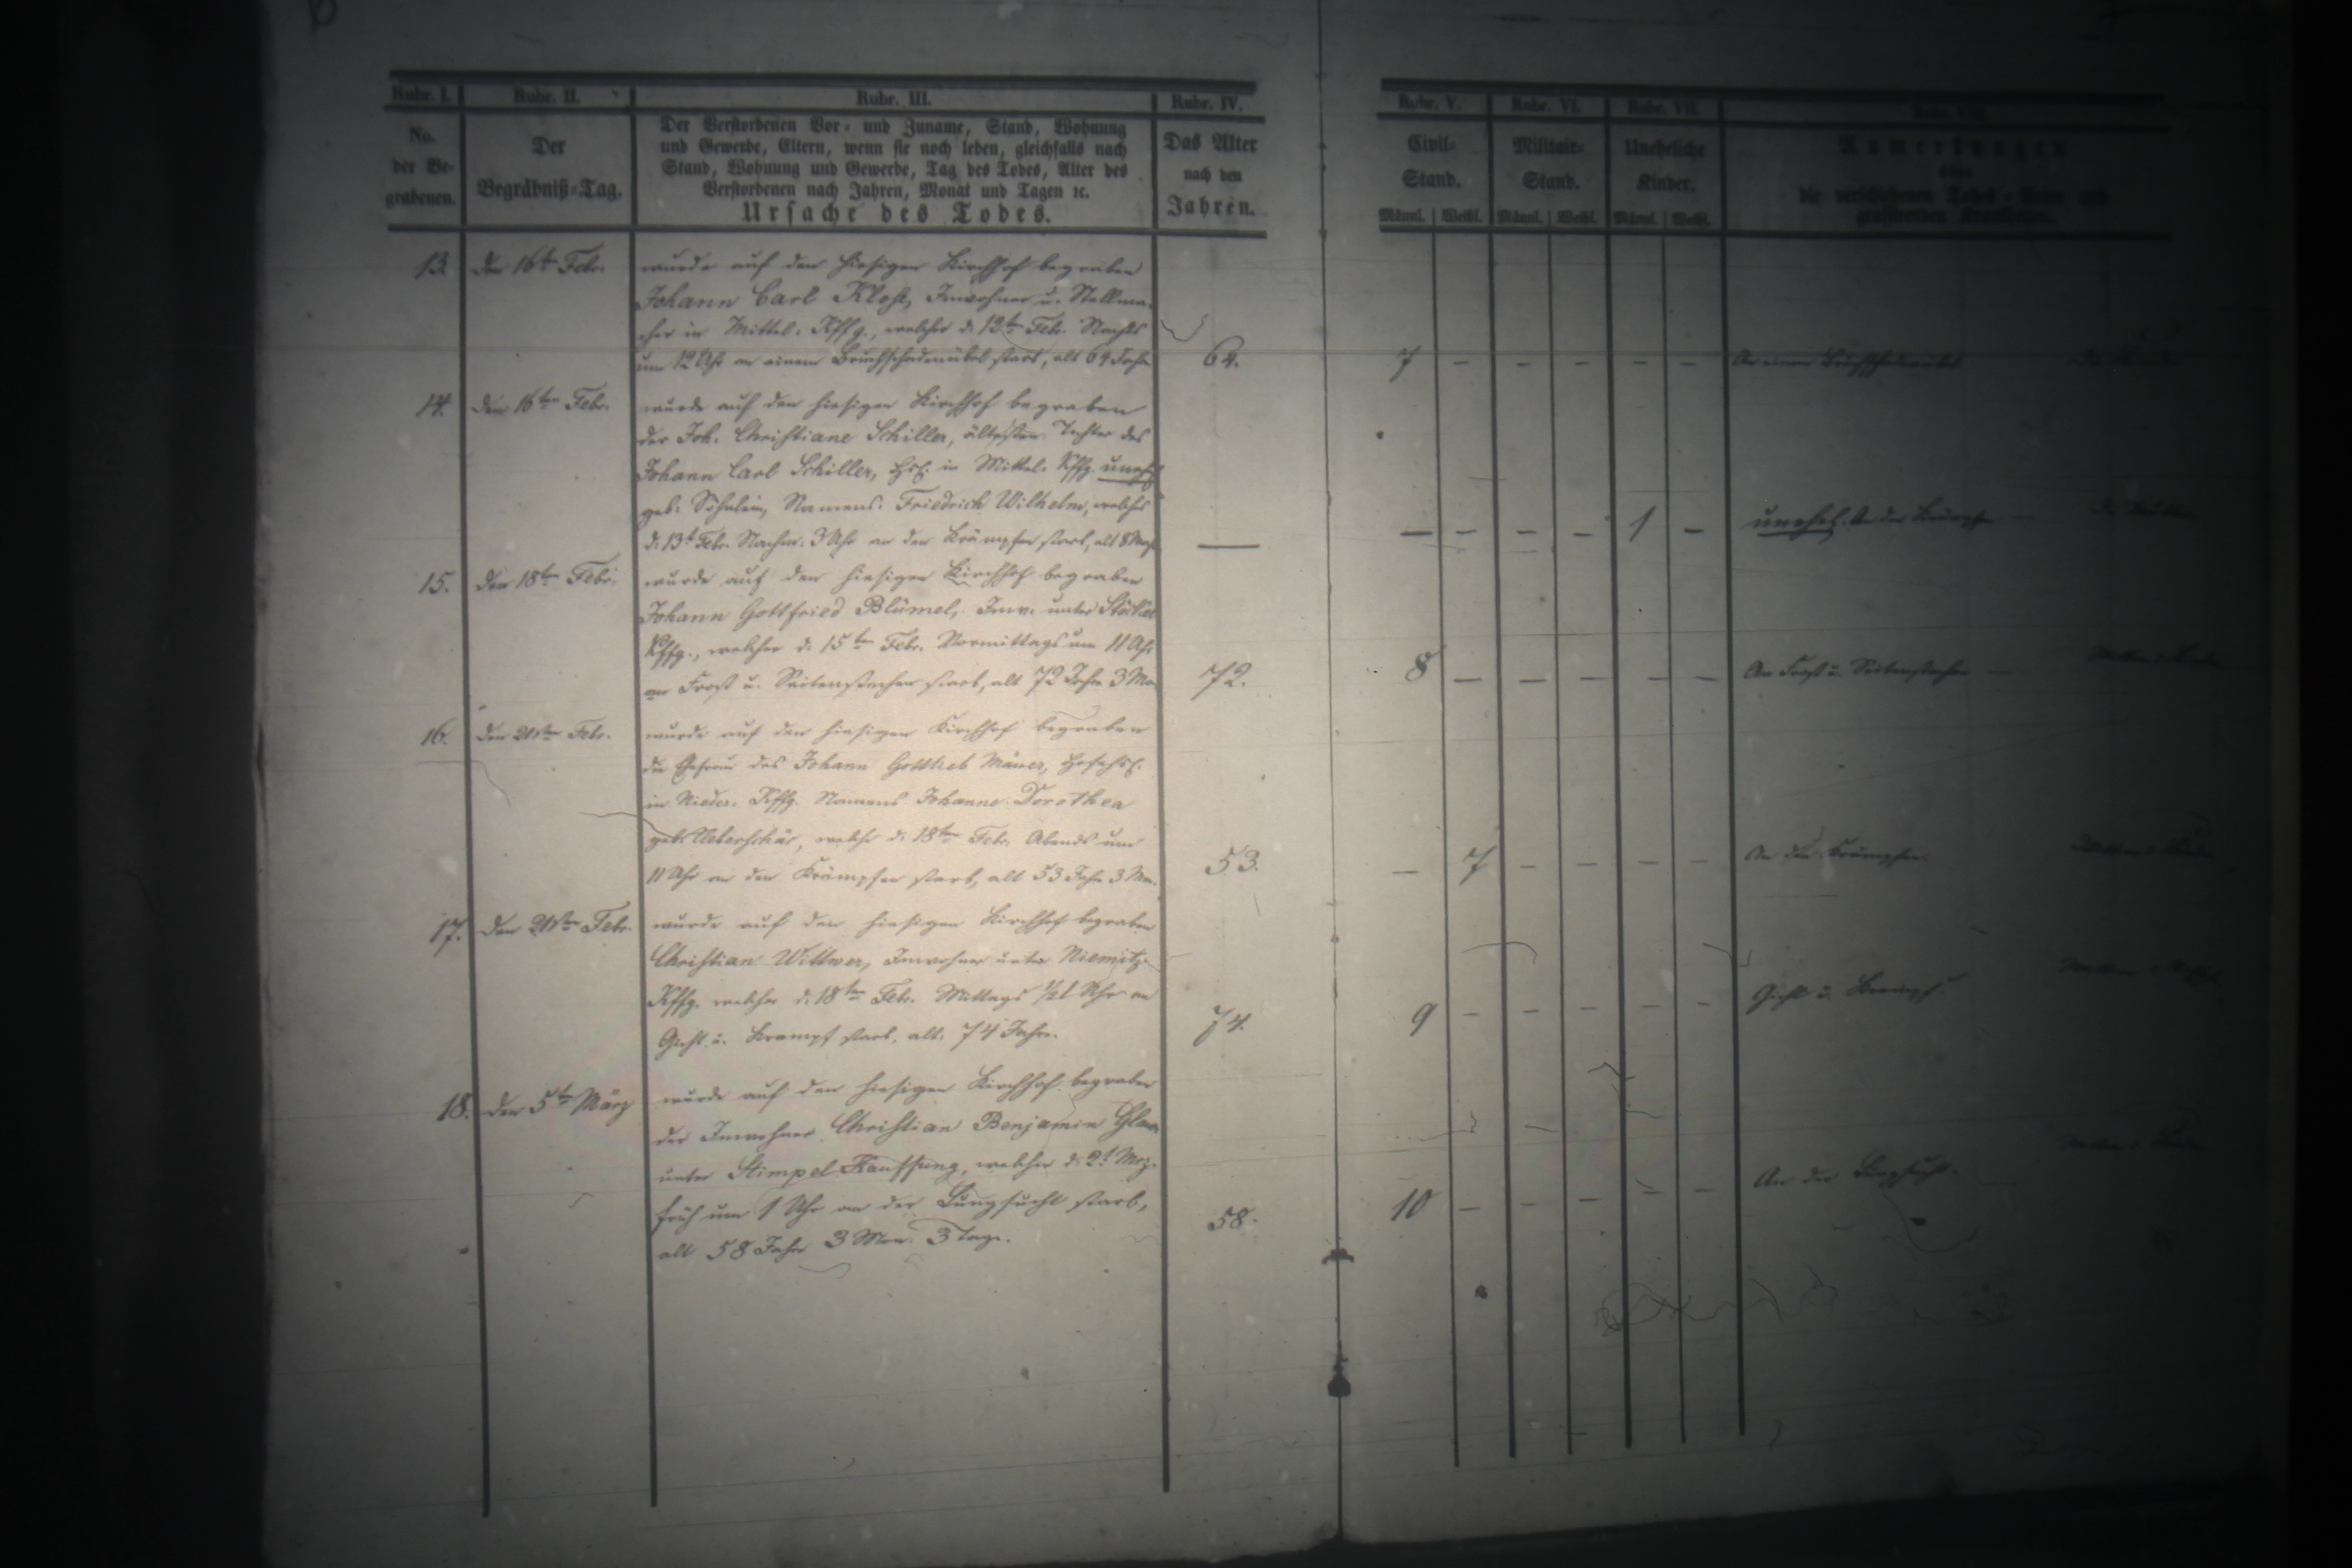 Rubr. I. Rubr. II. Rubr. III. Rubr. IV. Rubr. V. Rubr. VI. Rubr. VII. Rubr. VIII.
No.
der Be-
grabenen.
Der
Begräbniß-Tag.
Der Verstorbenen Vor- und Zuname, Stand, Wohnung
und Gewerbe, Eltern, wenn sie noch leben, gleichfalls nach
Stand, Wohnung und Gewerbe, Tag des Todes, Alter des
Verstorbenen nach Jahren, Monat und Tagen ꝛc.
Ursache des Todes.
Das Alter
nach den
Jahren.
Civil-
Stand.
Männl. Weibl.
Militair-
Stand.
Männl. Weibl.
Uneheliche
Kinder.
Männl. Weibl.
Anmerkungen
über
die verschiedenen Todes-Arten und
grassirenden Krankheiten.
13. den 16ten Febr. wurde auf den hiesigen Kirchhof begraben
Johann Carl Klose, Inwohner u. Stellma-
cher in Mittel-Kffg., welcher d. 12ten Febr. Nachts
um 12 Uhr an einem Bruchschadenübel starb, alt 64 Jahr 64. 7 – – – – – An einem Bruchschadenübel
14. den 16ten Febr. wurde auf den hiesigen Kirchhof begraben
der Joh. Christiane Schiller, ältesten Tochter des
Johann Carl Schiller, in Mittel-Kffg. unehel.
geb. Söhnlein, Namens: Friedrich Wilhelm, welches
d. 13t Febr. Nachm. 3 Uhr an den Krämpfen starb, alt — – – – – 1 – unehel. An den Krämpfen
15. den 18ten Febr. wurde auf den hiesigen Kirchhof begraben
Johann Gottfried Blümel, Inw. unter Stöckel
Kffg., welcher d. 15ten Febr. Vormittags um 11 Uhr
an Frost u. Seitenstechen starb, alt 72 Jahr 3 Mo. 72. 8 – – – – – An Frost u. Seitenstechen
16. den 21sten Febr. wurde auf den hiesigen Kirchhof begraben
die Ehefrau des Johann Gottlieb
in Nieder-Kffg. Namens Johanne Dorothea
geb. Ueberschär, welche d. 18ten Febr. Abends um
11 Uhr an den Krämpfen starb, alt 53 Jahr 3 Mon. 53. – 7 – – – – An den Krämpfen
17. den 21sten Febr. wurde auf den hiesigen Kirchhof begraben
Christian Wittwer, Inwohner unter Niemitz-
Kffg. welcher d. 18ten Febr. Mittags ½1 Uhr an
Gicht u. Krampf starb, alt 74 Jahre. 74. 9 – – – – – Gicht u. Krampf.
18. den 5ten März wurde auf den hiesigen Kirchhof begraben
der Inwohner Christian Benjamin
unter Stimpel Kauffung, welcher d. 2t Mrz.
früh um 1 Uhr an der Lungsucht starb,
alt 58 Jahr 3 Mon. 3 Tage. 58. 10 – – – – – An der Lungsucht.